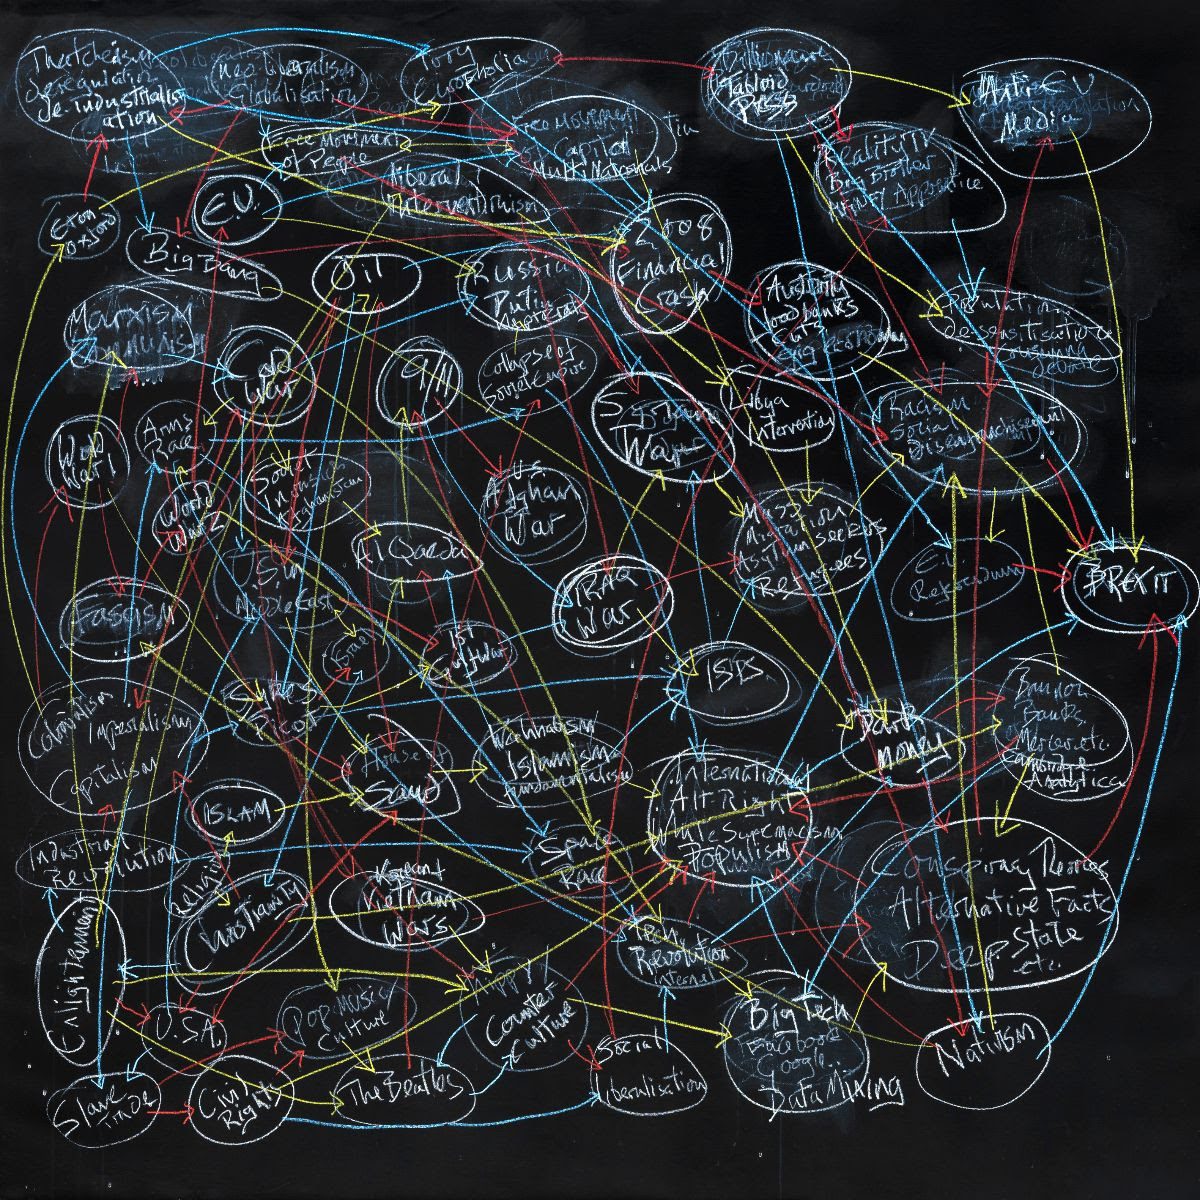 Thatcherism
deregulation
de-industrialis
ation
Neo liberalism
Globalisation
Tory
Euroskeptics
Billionaire
Tabloid
Press
Anti E.U
Media
Free Movement
of People
Free Movement
of Capital
Multi Nationals
Reality TV
Big Brother
Apprentice
liberal
interventionism
Eton
Oxford
E.U.
Big Bang
Oil
Russia
Putin
Kleptocrats
2008
Financial
Crash
Austerity
foodbanks
Cuts
desensitisation
Marxism
Communism
Cold
War
9/11
Collapse of
Soviet Empire
Syrian
War
Libya
Intervention
Racism
Social
Disenfranchisement
World
War 1
Arms
Race
World
War 2
Soviet
Invasion
Afghanistan
U.S.
Afghan
War
Mass
Migration
Asylum seekers
Refugees
Al Qaeda
E.U
Referendum
BREXIT
Fascism
U.S. in
Middle East
Israel
1st
Gulf War
IRAQ
War
ISIS
Colonialism
Imperialism
Capitalism
Sykes
Picot
House of
Saud
Wahhabism
Islamism
fundamentalism
Dark
money
Bannon
Banks
Mercer etc
Cambridge
Analytica
ISLAM
International
Alt Right
White Supremacism
POPULISM
Industrial
Revolution
Religion
Christianity
Space
Race
Korean +
Vietnam
Wars
Conspiracy Theories
Alternative Facts
Deep State
etc.
Enlightenment
Tech
Revolution
Internet
U.S.A.
Pop Music/
Culture
Hippy/
Counter
Culture
Big Tech
Facebook
Google...
Data Mining
Nativism
Slave
Trade
Civil
Rights
The Beatles
Social
Liberalisation